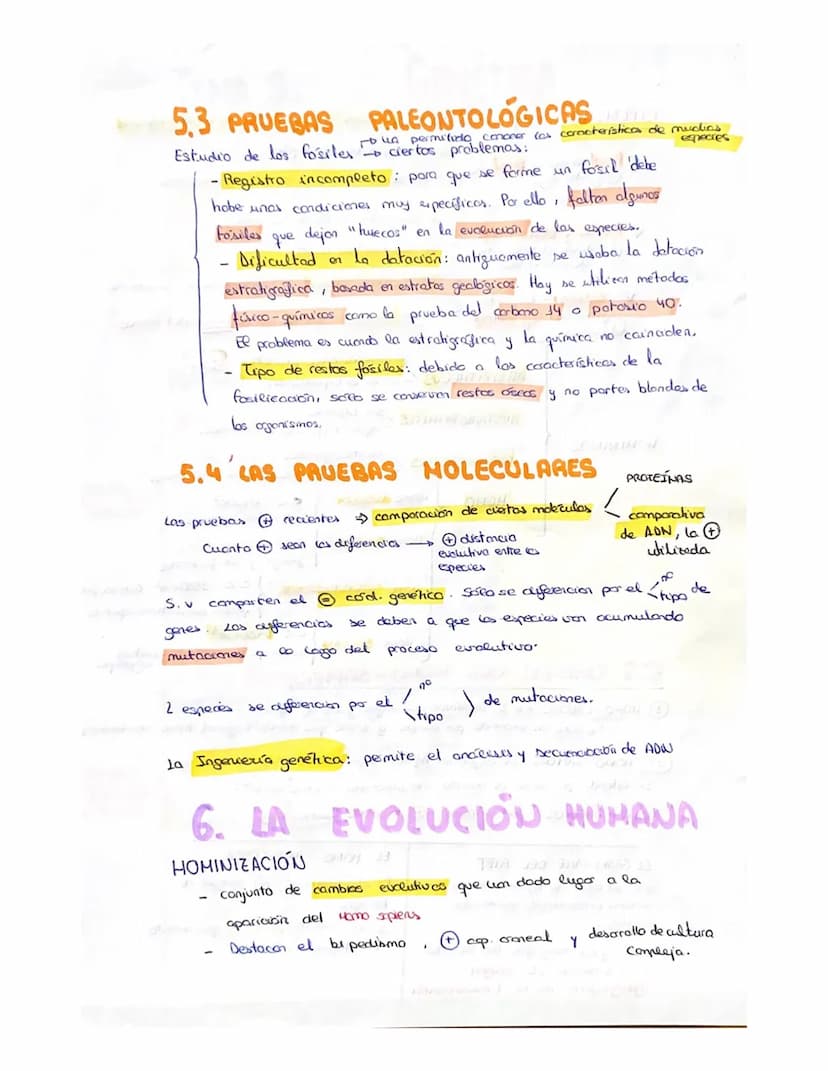 5.3 PRUEBAS PALEONTOLÓGICAS
Estudio de los fósiles → ha permitido conocer las características de muchas especies
→ ciertos problemas:
- Registro incompleto: para que se forme un fósil debe
habe unas condiciones muy específicas. Por ello, faltan algunos
fósiles que dejan "huecos" en la evolución de las especies.
- Dificultad en la datación: antiguamente se usaba la datación
estratigráfica, basada en estratos geológicos. Hoy se utilizan métodos
físico-químicos como la prueba del carbono 14 o potasio 40.
El problema es cuando la estratigráfica y la química no coinciden.
- Tipo de restos fósiles: debido a las características de la
fosilización, sólo se conservan restos óseos y no partes blandas de
los organismos.
5.4 LAS PRUEBAS MOLECULARES
PROTEÍNAS
Las pruebas ⊕ recientes ⇒ comparación de ciertas moléculas
comparativa
de ADN, la ⊕
utilizada
Cuanto ⊕ sean las diferencias → ⊕ distancia
evolutiva entre las
especies
S.v comparten el ⊜ cód. genético. Sólo se diferencian por el nº
tipo de
genes. Las diferencias se deben a que las especies van acumulando
mutaciones a lo largo del proceso evolutivo.
2 especies se diferencian por el nº
tipo
de mutaciones.
La Ingeniería genética: permite el análisis y secuenciación de ADN
6. LA EVOLUCIÓN HUMANA
HOMINIZACIÓN
- conjunto de cambios evolutivos que han dado lugar a la
aparición del Homo sapiens
- Destacan el bipedismo, ⊕ cap. craneal y desarrollo de cultura
compleja.